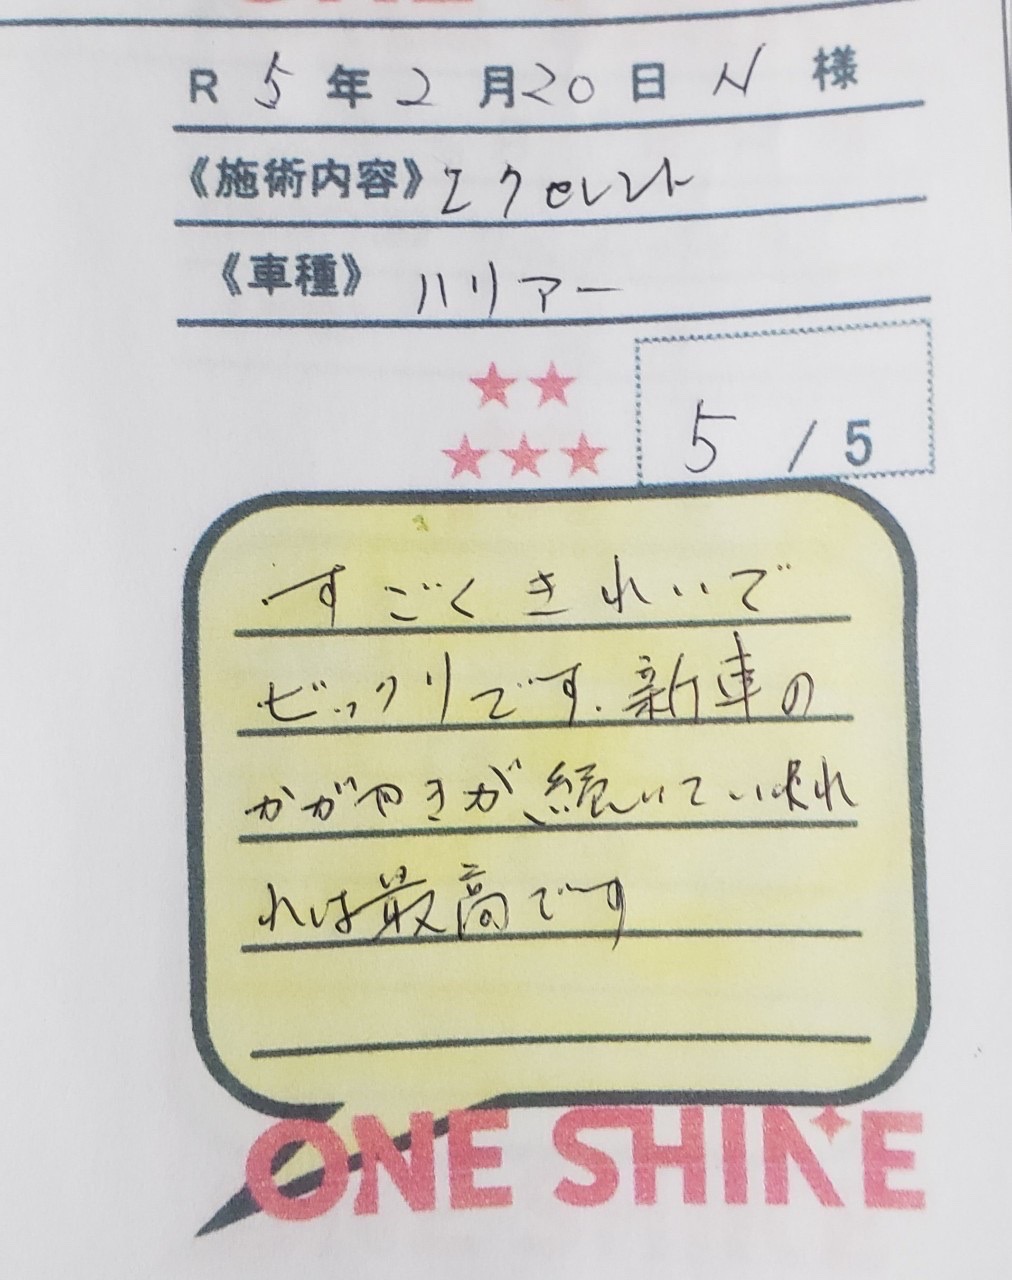 R 5 年 2 月 20 日 N 様
《施術内容》エクセレント
《車種》ハリアー
5 / 5
すごくきれいで
ビックリです.新車の
かがやきが、続いていかれ
れば最高です
ONE SHINE